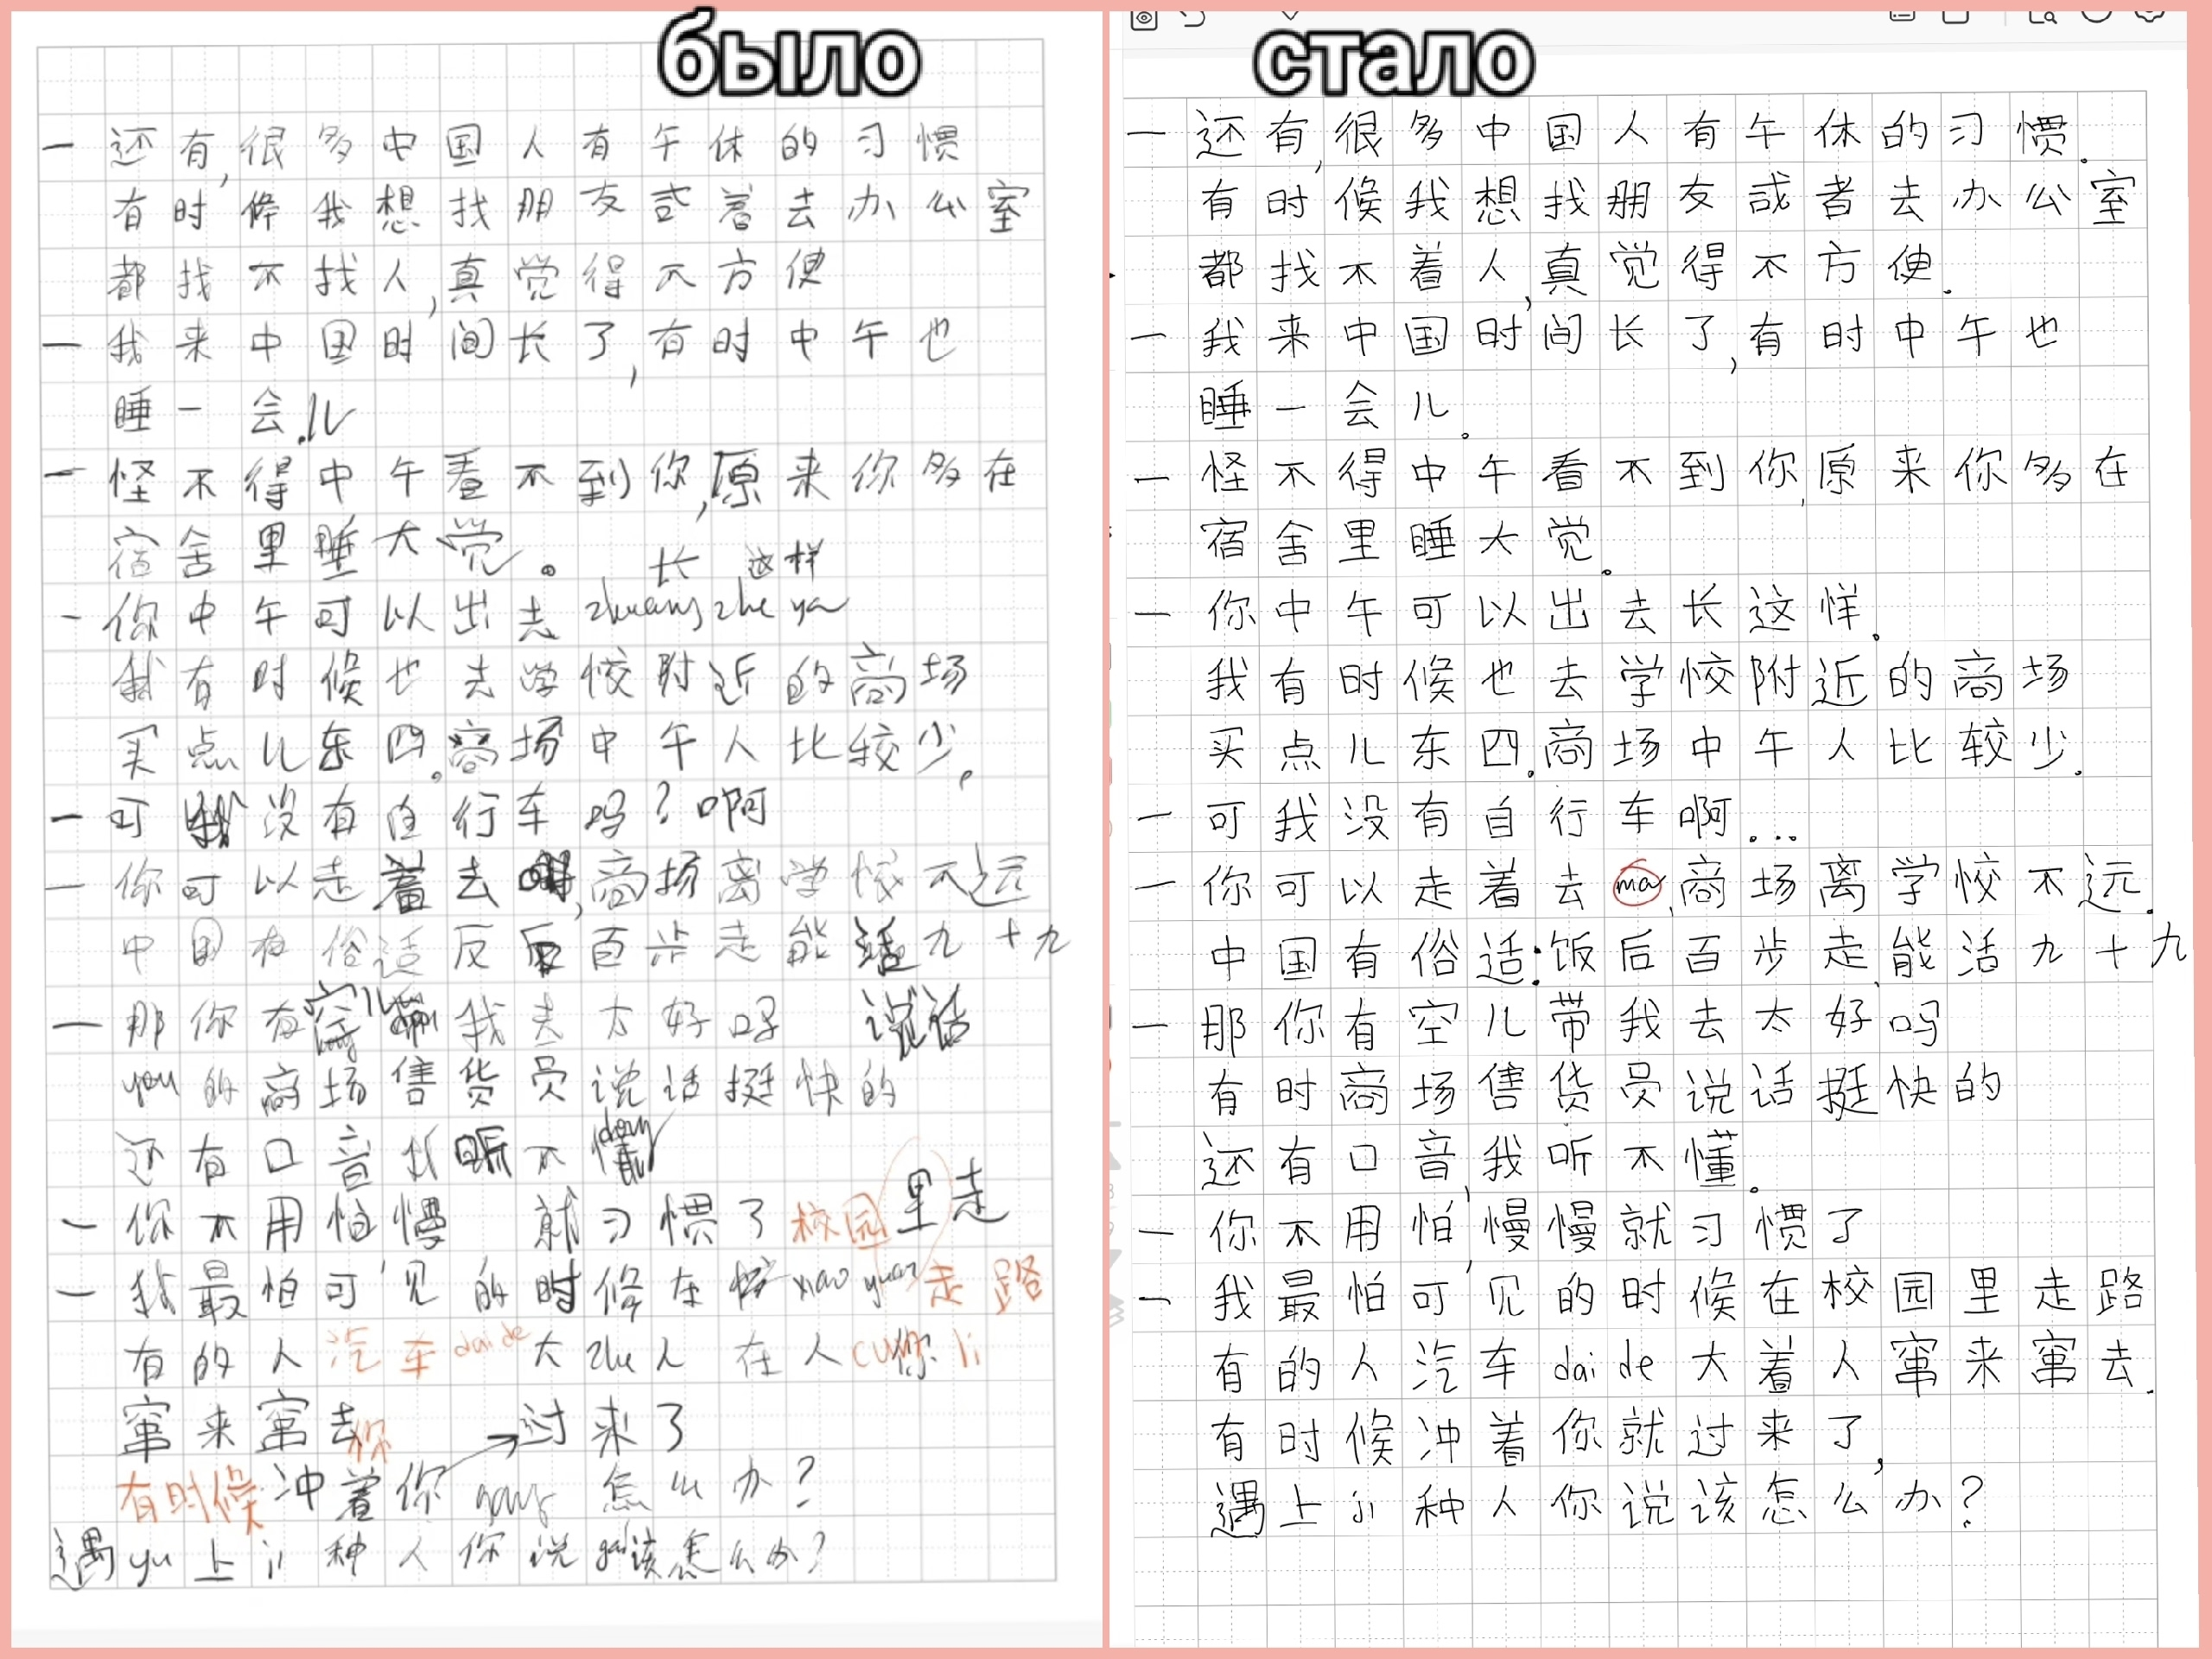 было
一 还有,很多中国人有午休的习惯
有时候我想找朋友或着去办公室
都找不找人,真觉得不方便
一 我来中国时间长了,有时中午也
睡一会.儿
一 怪不得中午看不到你,原来你多在
宿舍里睡大觉。
长 这样
一 你中午可以出去 zhuang zhe ya
我有时候也去学恔附近的商场
买点儿东四.商场中午人比较少.
一 可我没有自行车吗?啊
一 你可以走着去,商场离学恔不远
中国有俗适反百步走能活九十九
一 那你有空儿我去太好吗 说话
you的商场售货员说话挺快的
还有口音我听不懂 dong
一 你不用怕慢 就习惯了校园里走
一 我最怕可见的时候在 xiao yuan 走路
有的人汽车 dai de 大 zhe 人在人你 li
窜来窜去你 过来了
有时候冲着你 gang 怎么办?
遇 yu 上 ji 种人你说 gai 该怎么办?
стало
一 还有,很多中国人有午休的习惯.
有时候我想找朋友或者去办公室
都找不着人,真觉得不方便.
一 我来中国时间长了,有时中午也
睡一会儿.
一 怪不得中午看不到你,原来你多在
宿舍里睡大觉.
一 你中午可以出去长这样.
我有时候也去学恔附近的商场
买点儿东四.商场中午人比较少.
一 可我没有自行车啊...
一 你可以走着去 ma,商场离学恔不远.
中国有俗适:饭后百步走,能活九十九
一 那你有空儿带我去太好吗
有时商场售货员说话挺快的
还有口音,我听不懂.
一 你不用怕,慢慢就习惯了
一 我最怕可见的时候在校园里走路
有的人汽车 dai de 大着人窜来窜去.
有时候冲着你就过来了,
遇上 ji 种人你说该怎么办?